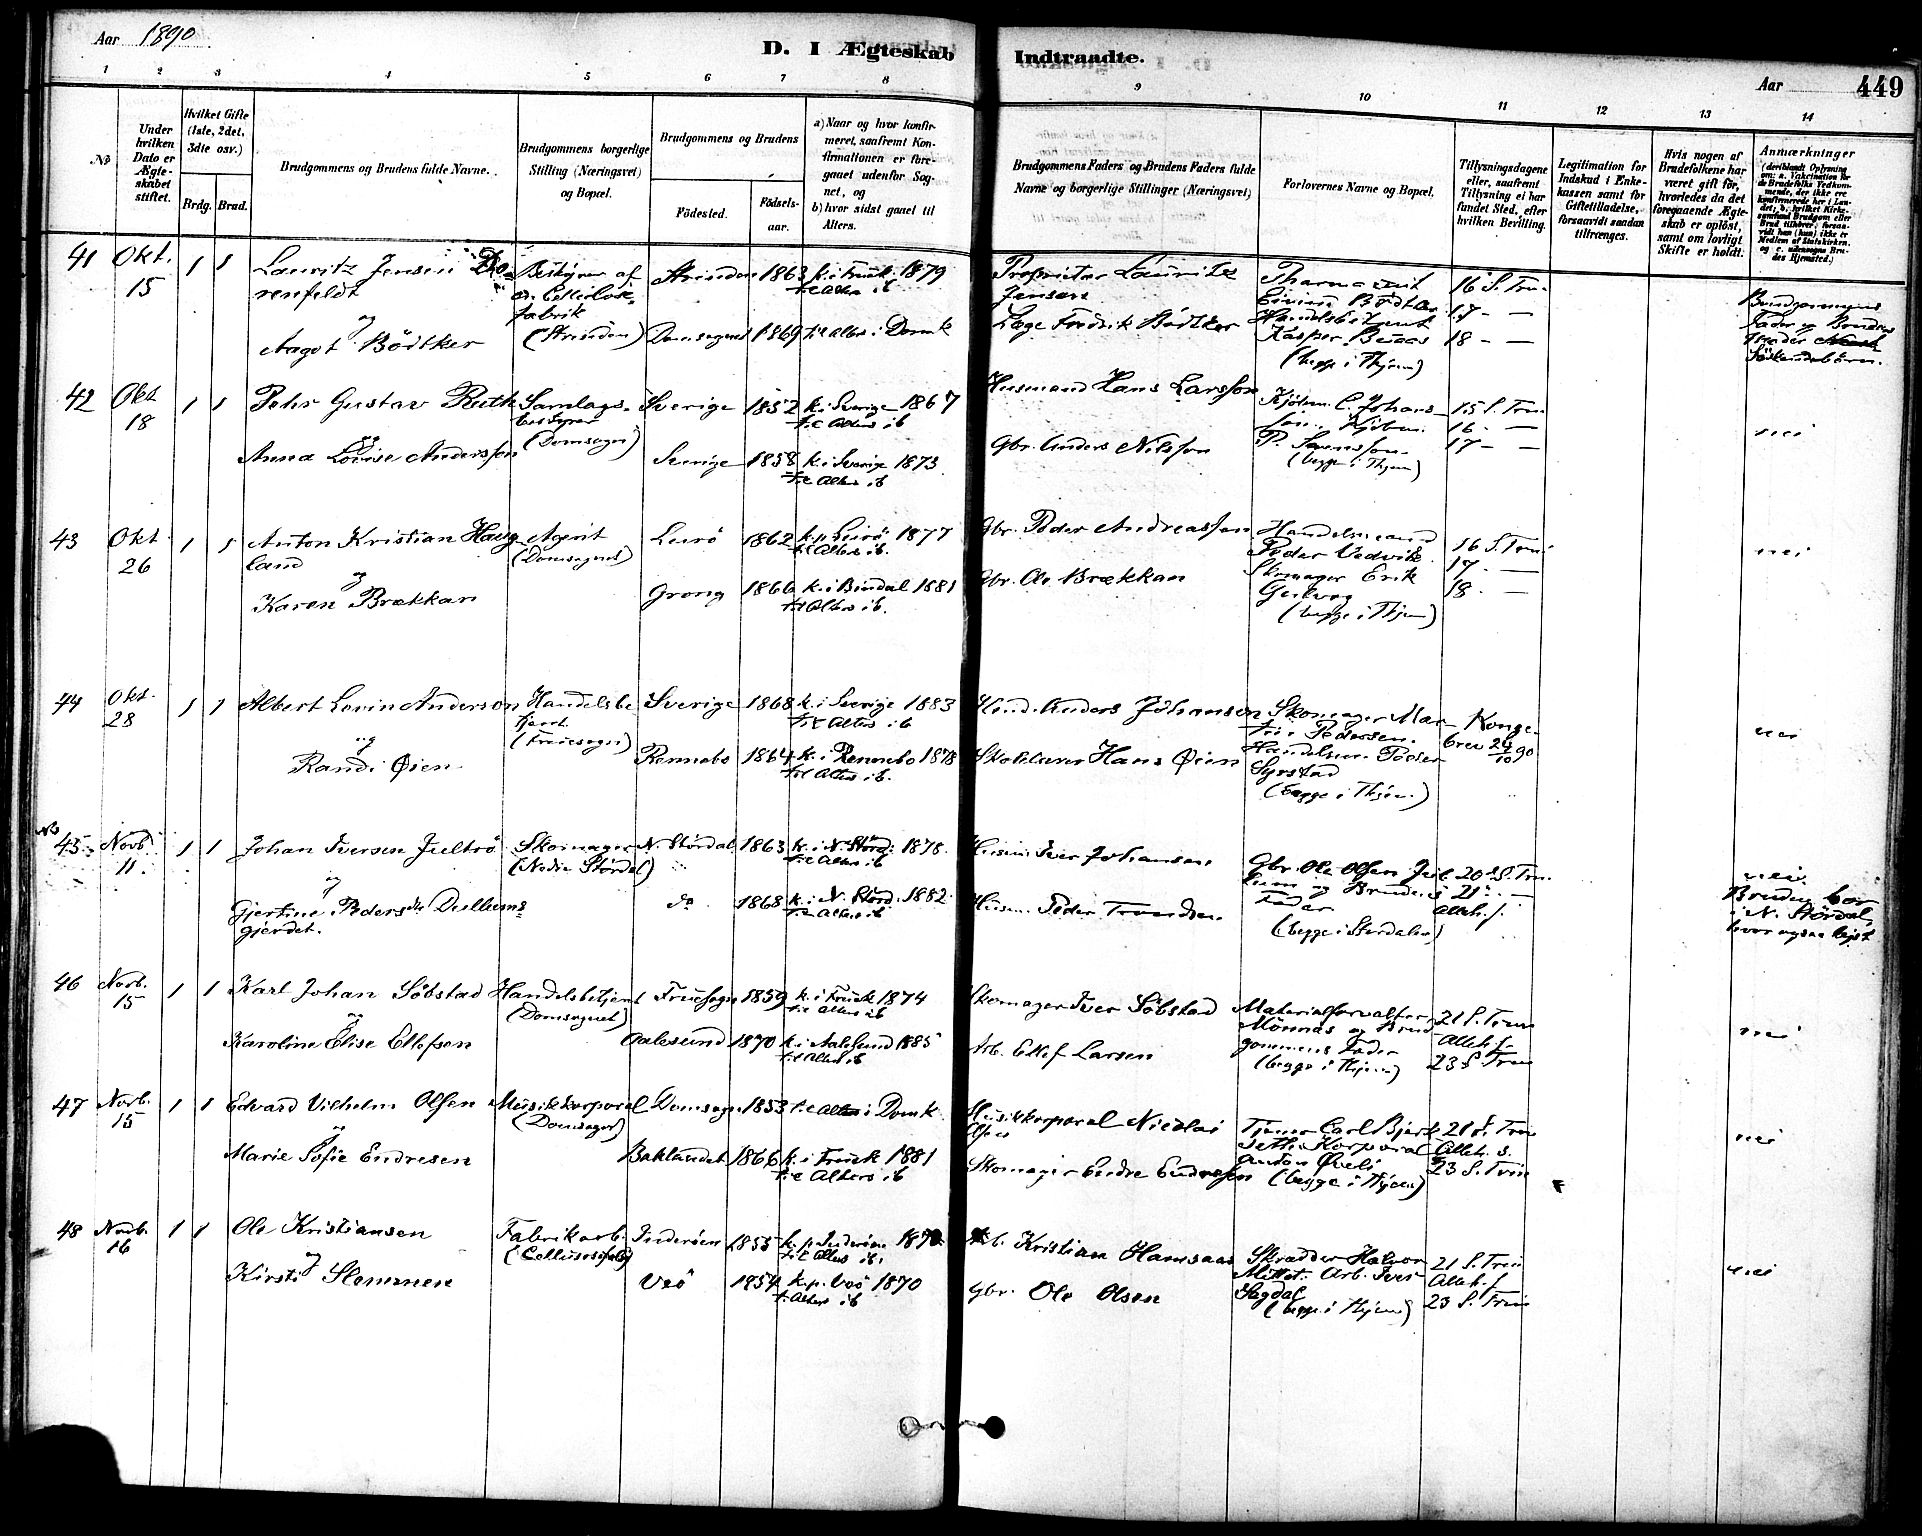 Aar 1890.
D. I Ægteskab Indtraadte.
Aar 449
1 2 3 4 5 6 7 8 9 10 11 12 13 14
No
Under hvilken Dato er Ægteskabet stiftet.
Hvilket Gifte (1ste, 2det, 3die osv.)
Brdg. Brud.
Brudgommens og Brudens fulde Navne.
Brudgommens borgerlige Stilling (Næringsvei) og Bopæl.
Brudgommens og Brudens
Fødested.
Fødselsaar.
a) Naar og hvor konfirmeret, saafremt Konfirmationen er foregaaet udenfor Sognet, og
b) hvor sidst gaaet til Alters.
Brudgommens Faders og Brudens Faders fulde Navne og borgerlige Stillinger (Næringsvei)
Forlovernes Navne og Bopæl.
Tillysningsdagene eller, saafremt Tillysning ei har fundet Sted, efter hvilken Bevilling.
Legitimation for Indskud i Enkekassen samt for Giftetilladelse, forsaavidt saadan tiltrænges.
Hvis nogen af Brudefolkene har været gift før, hvorledes da det foregaaende Ægteskab er opløst, samt om lovligt Skifte er holdt.
Anmærkninger
41 Okt. 15 1 1
Lauritz Jensen
renfeldt
og
Aagot Bödtker
Bestyrer af
fabrik
(Strinden)
Strinden 1863 k. i Fruek. 1879
til Alters ib
Domsognet 1869 til Alters i Domk
Proprietær Lauritz
Jensen
Læge Fredrik Bödtker
Einar Bödtker
Kasper
(begge i Thjem)
16 S. Trin.
17 - —
18 - —
Brudgommens
Fader og Brudens
Søskendebörn.
42 Okt 18 1 1
Pehr Gustav Ruth
og
Anna Lovise Andersson
Samlags-
bestyrer
(Domsognet)
Sverige 1852 k. i Sverige 1867
til Alters ib
Sverige 1858 k. i Sverige 1873
til Alters ib
Husmand Hans Larsson
Gbr. Anders Nilsson
Kjöbm. C. Johans-
son. Kjöbm.
P. Svensson.
(begge i Thjem)
15 S. Trin
16 - —
17 - —
nei
43 Okt. 26 1 1
Anton Kristian Haug-
land
og
Karen Brækkan
Agent
(Domsognet)
Leirö 1862 k. p. Leirö 1877
til Alters ib.
Grong 1866 k. i Bindal 1881
til Alters ib.
Gbr. Peder Andreassen
Gbr. Ole Brækkan
Handelsmand
Peder Vedvik
Skomager Erik
(begge i Thjem)
16 S. Trin.
17 - —
18 - —
nei
44 Okt. 28 1 1
Albert Lovin Anderson
og
Randi Øien
Handelsbe-
tjent.
(Fruesogn)
Sverige 1868 k. i Sverige 1883
til Alters ib
Rennebo 1864 k. i Rennebo 1878
til Alters ib.
Anders Johanson
Skolelærer Hans Øien
Skomager Mar-
Pedersen.
Handelsm. Peder
Syrstad
(begge i Thjem.)
Konge-
brev 24/10 90
nei
No 45 Novb. 11. 1 1
Johan Iversen Jultrö
og
Gjertine Pedersdtr
gjerdet.
Skomager
(Nedre Stördal)
N. Stördal 1863 k. i N. Störd. 1878.
til Alters ib
do 1868 k. i N. Störd. 1882
til Alters ib
Husm. Iver Johansen
Husm. Peder Trondsen
Gbr. Ole Olsen
og Brudens
Fader
(begge i Stördalen)
20 S. Trin.
21 - —
Alleh. f.
nei.
Bruden bor
i N. Stördal,
hvor ogsaa lyst
46 Novb. 15 1 1
Karl Johan Söbstad
og
Karoline Elise Ellefsen
Handelsbetjent
(Domsognet)
Fruesogn 1859 k. i Fruek 1874
til Alters ib
Aalesund 1870 k. i Aalesund 1885
til Alters ib
Skomager Iver Söbstad
Arb. Ellef Larsen
Materialforvalter
Mönnas og Brud-
gommens Fader
(begge i Thjem)
21 S. Trin
Alleh. f.
23 S. Trin
nei
47 Novb. 15 1 1
Edvard Vilhelm Olsen
og
Marie Sofie Endresen
Musikkorporal
(Domsogn)
Domsogn 1853 til Alters i Domk.
Baklandet 1866 k. i Fruek 1881
til Alters ib
Musikkorporal Nicolai
Olsen
Skomager Endre Endresen
Tjener Carl Bjerk-
Korporal
Anton
(begge i Thjem)
21 S. Trin
Alleh. f.
23 S. Trin
nei
48 Novb. 16 1 1
Ole Kristiansen
og
Kirsti Slemmen
Fabrikarb.
Inderöen 1855 k. p. Inderöen
til Alters ib.
Veö 1854 k. p. Veö 1870
til Alters ib
Arb. Kristian Hamsaas
Gbr. Ole Olsen
Skrædder Halvor
Arb. Iver
Sagdal
(begge i Thjem)
21 S. Trin
Alleh. f.
23 S. Trin
nei